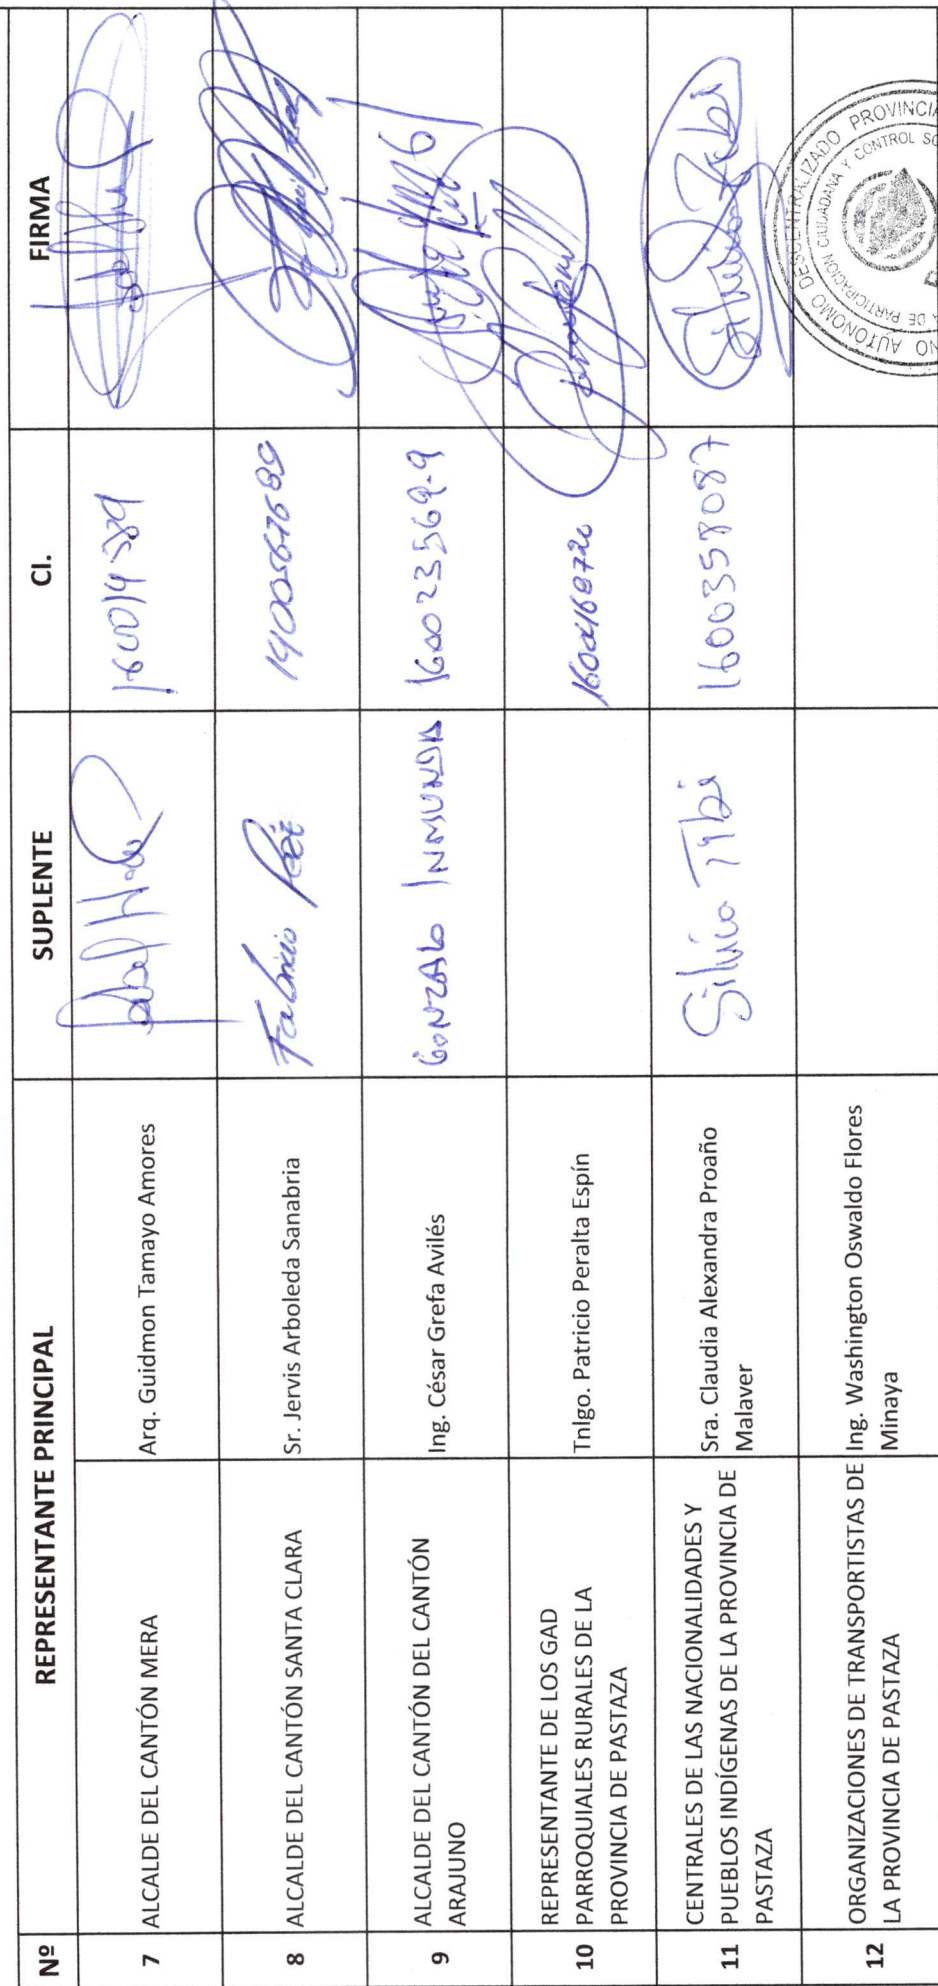 Nº REPRESENTANTE PRINCIPAL SUPLENTE CI. FIRMA
7 ALCALDE DEL CANTÓN MERA Arq. Guidmon Tamayo Amores
8 ALCALDE DEL CANTÓN SANTA CLARA Sr. Jervis Arboleda Sanabria Fabricio 1400567689
9 ALCALDE DEL CANTÓN DEL CANTÓN
ARAJUNO
Ing. César Grefa Avilés GONZALO INMUNDA 160023569-9
10 REPRESENTANTE DE LOS GAD
PARROQUIALES RURALES DE LA
PROVINCIA DE PASTAZA
Tnlgo. Patricio Peralta Espín
11 CENTRALES DE LAS NACIONALIDADES Y
PUEBLOS INDÍGENAS DE LA PROVINCIA DE
PASTAZA
Sra. Claudia Alexandra Proaño
Malaver
Silvia Tibi 1600358087
12 ORGANIZACIONES DE TRANSPORTISTAS DE
LA PROVINCIA DE PASTAZA
Ing. Washington Oswaldo Flores
Minaya
NO AUTÓNOMO DESCENTRALIZADO PROVINCIA
A DE PARTICIPACIÓN CIUDADANA Y CONTROL SO